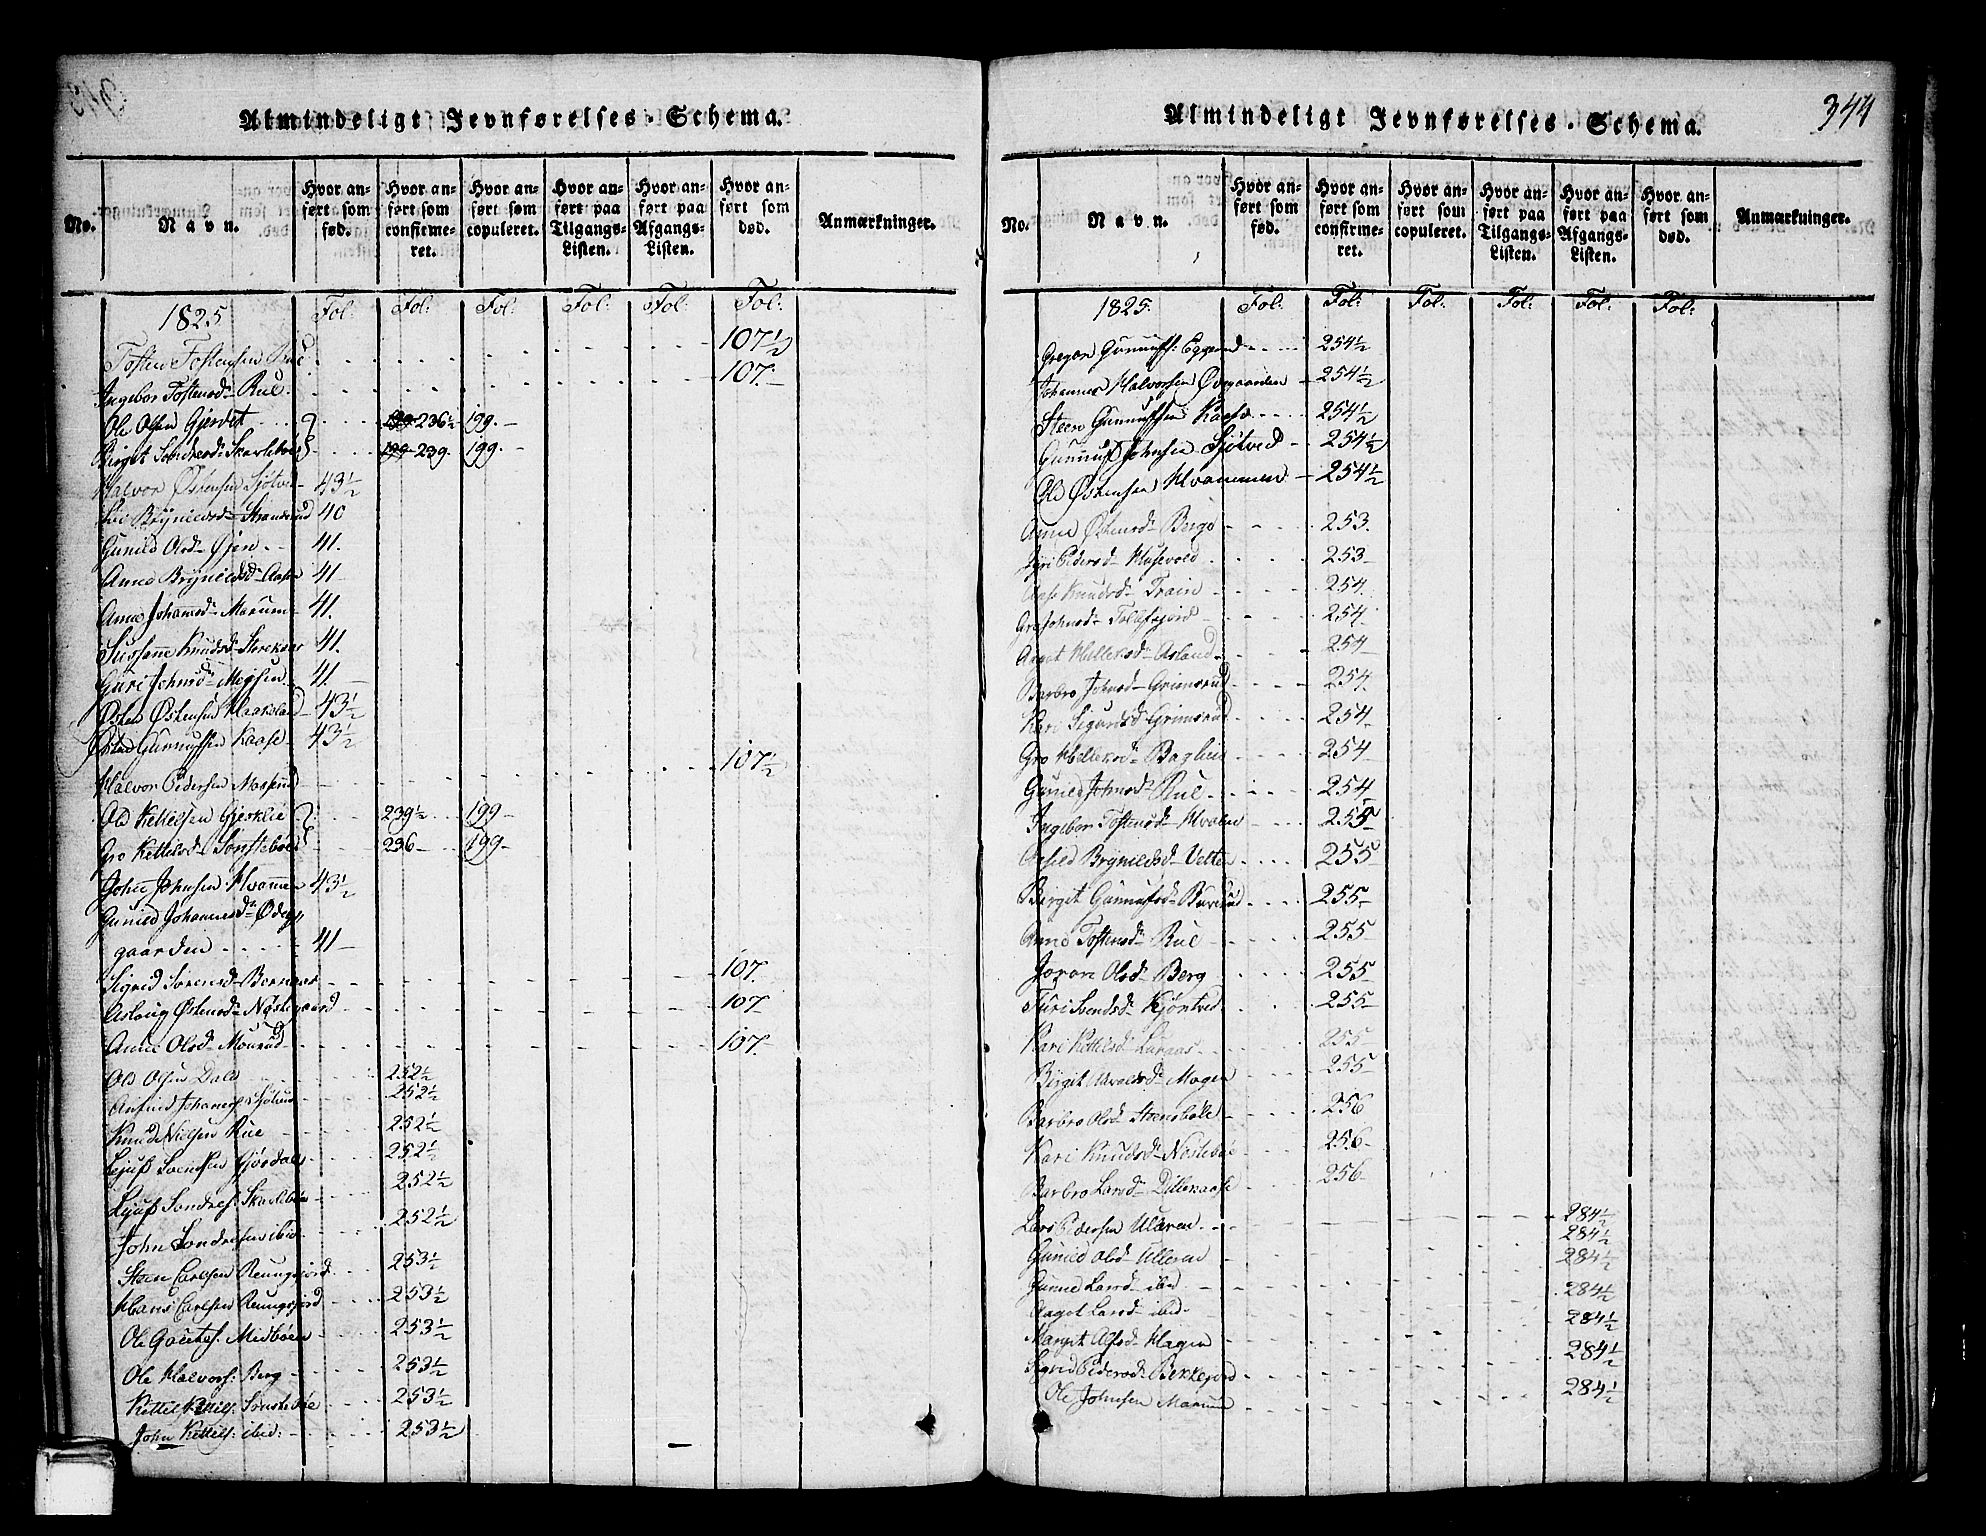 Almindeligt Jevnførelses-Schema.
No.
Navn.
Hvor anført som fød.
Hvor anført som confirmeret.
Hvor anført som copuleret.
Hvor anført paa Tilgangs-Listen.
Hvor anført paa Afgangs-Listen.
Hvor anført som død.
Anmærkninger.
1825 Fol: Fol: Fol: Fol: Fol: Fol:
Tosten Tostensen Rue 107½
Ingebor Tostensd Rue 107.
Ole Olsen Gjerdet 199 236½ 199.
Birget Sondresd 199 239. 199.
Halvor Østensen Sjøtve 43½
Brynieldsd Strandrud 40
Gunild Olsd Øjen 41.
Anne Brynieldsd Aasen 41
Anne Johannsd Marum 41.
Sussane Knudsd 41.
Guri Johnsd 41.
Østen Østensen Haaksland 43½
Østen Gunnufsen Kaase 43½
Halvor Pedersen 107½
Ole Kettelsen Gjerklie 239½ 199
Gro Kettelsd Sønstebøe 236 199
John Johnsen Hvammen 43½
Gunild Johannesd Ødegaarden 41
Sigrid Sørensd 107.
Aslaug Østensd Nøstegaard 107
Anne Olsd Mourud 107.
Ole Olsen Dale 252½
252½
Knud Nielsen Rue 252½
Ljuf Svendsen Gjøsdal 252½
Ljuf Sondres: 252½
John Sondresen ibid 252½
Steen Carlsen Reungsjord 253½
Hans Carlsen Reungsjord 253½
Ole Gautes: Midbøen 253½
Ole Halvors: Berg 253½
Kettel Kettels: Sønstebøe 253½
John Kettels: ibid: 253½
Almindeligt Jevnførelses-Schema.
344
No.
Navn.
Hvor anført som fød.
Hvor anført som confirmeret.
Hvor anført som copuleret.
Hvor anført paa Tilgangs-Listen.
Hvor anført paa Afgangs-Listen.
Hvor anført som død.
Anmærkninger.
1825. Fol: Fol: Fol: Fol: Fol: Fol:
Gregar Gunnufs: Eggerud 254½
Johannes Halvorsen Øvregaarden 254½
Steen Gunnufsen Kaase 254½
Gunnuf Johnsen Sjøtved 254½
Ole Østensen Hvammen 254½
Anne Østensd Berge 253.
Pedersd Husevold 253
Aase Knudsd Traen 254.
Gro Johnsd 254
Helleksd Asland 254
Barbro Johnsd Grimsrud 254.
Kari Sigurdsd Grimsrud 254
Gro Helleksd Baglie 254
Gunild Johnsd Rue 254
Ingebor Tostensd Hvalen 255
Brynieldsd Vetten 255
Birget Gunnufsd 255
Anne Tostensd Rue 255
Joran Olsd Berg 255
Turi Svendsd Kjøntved 255
Kari Kettelsd Luraas 255
Birget Mogen 255
Barbro Olsd Steensbøle 256
Kari Knudsd Nøstebøe 256
Barbro Larsd 256
Lars Pedersen Ulleren 284½
Gunild Olsd Ulleren 284½
Gunne Larsd ibid 284½
Aagot Larsd ibid 284½
Margit Olsd Hagen 284½
Sigrid Pedersd Bekkejord 284½
Ole Johnsen Marum 284½